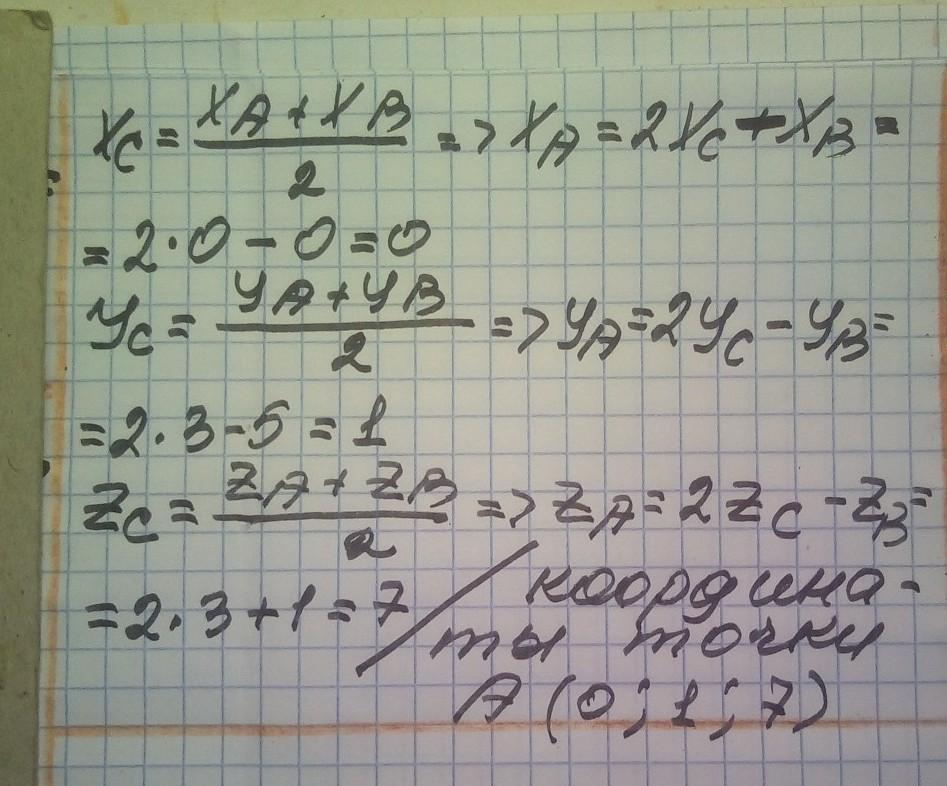 Xc = (XA + XB)/2 => XA = 2Xc + XB =
= 2·0 - 0 = 0
Yc = (YA + YB)/2 => YA = 2Yc - YB =
= 2·3 - 5 = 1
Zc = (ZA + ZB)/2 => ZA = 2Zc - ZB =
= 2·3 + 1 = 7 / координа-
ты точки
A (0; 1; 7)